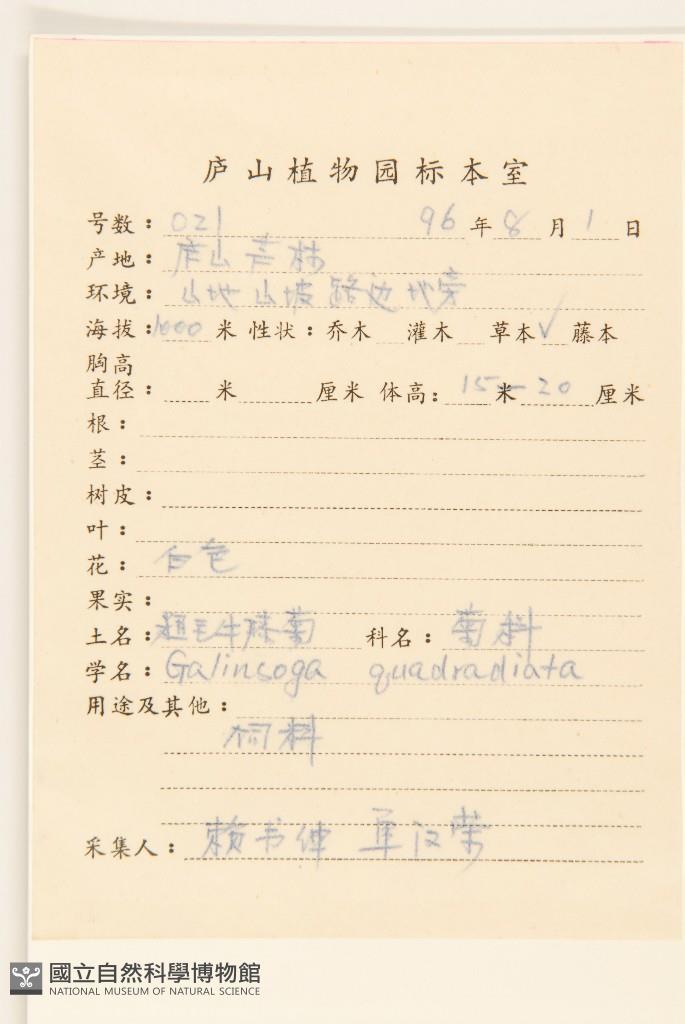 庐山植物园标本室
号数：021 96年8月1日
产地：庐山芦林
环境：山地山坡路边地旁
海拔：1000米 性状：乔木 灌木 草本√ 藤本
胸高
直径： 米 厘米 体高： 15—20 米 厘米
根：
茎：
树皮：
叶：
花：白色
果实：
土名：粗毛牛膝菊 科名：菊科
学名：Galinsoga quadradiata
用途及其他：
饲料
采集人：赖书绅 汉荣
國立自然科學博物館
NATIONAL MUSEUM OF NATURAL SCIENCE